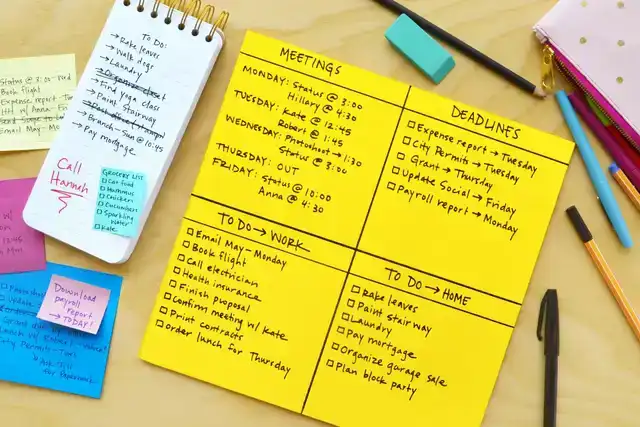 TO DO:
→ Rake leaves
→ Walk dogs
→ Laundry
→ Organize closet
→ Find yoga class
→ Paint Stairway
→ Branch - Sun @ 10:45
→ Pay mortgage
Call
Hannah
GROCERY LIST
Cat food
Hummus
Chicken
Cucumbers
Sparkling
Water
Kale
Status @ 3:00
Book flight
Expense report
Email May - Mo
w/
12:45
Download
payroll
report
→ TODAY!
MEETINGS
MONDAY: Status @ 3:00
Hillary @ 4:30
TUESDAY: Kate @ 12:45
Robert @ 1:45
WEDNESDAY: Photoshoot → 1:30
Status @ 3:00
THURSDAY: OUT
FRIDAY: Status @ 10:00
Anna @ 4:30
DEADLINES
Expense report → Tuesday
City Permits → Tuesday
Grant → Thursday
Update Social → Friday
Payroll report → Monday
TO DO → WORK
Email May - Monday
Book flight
Call electrician
Health insurance
Finish proposal
Confirm meeting w/ Kate
Print contracts
Order lunch for Thursday
TO DO → HOME
Rake leaves
Paint Stairway
Laundry
Pay mortgage
Organize garage sale
Plan block party